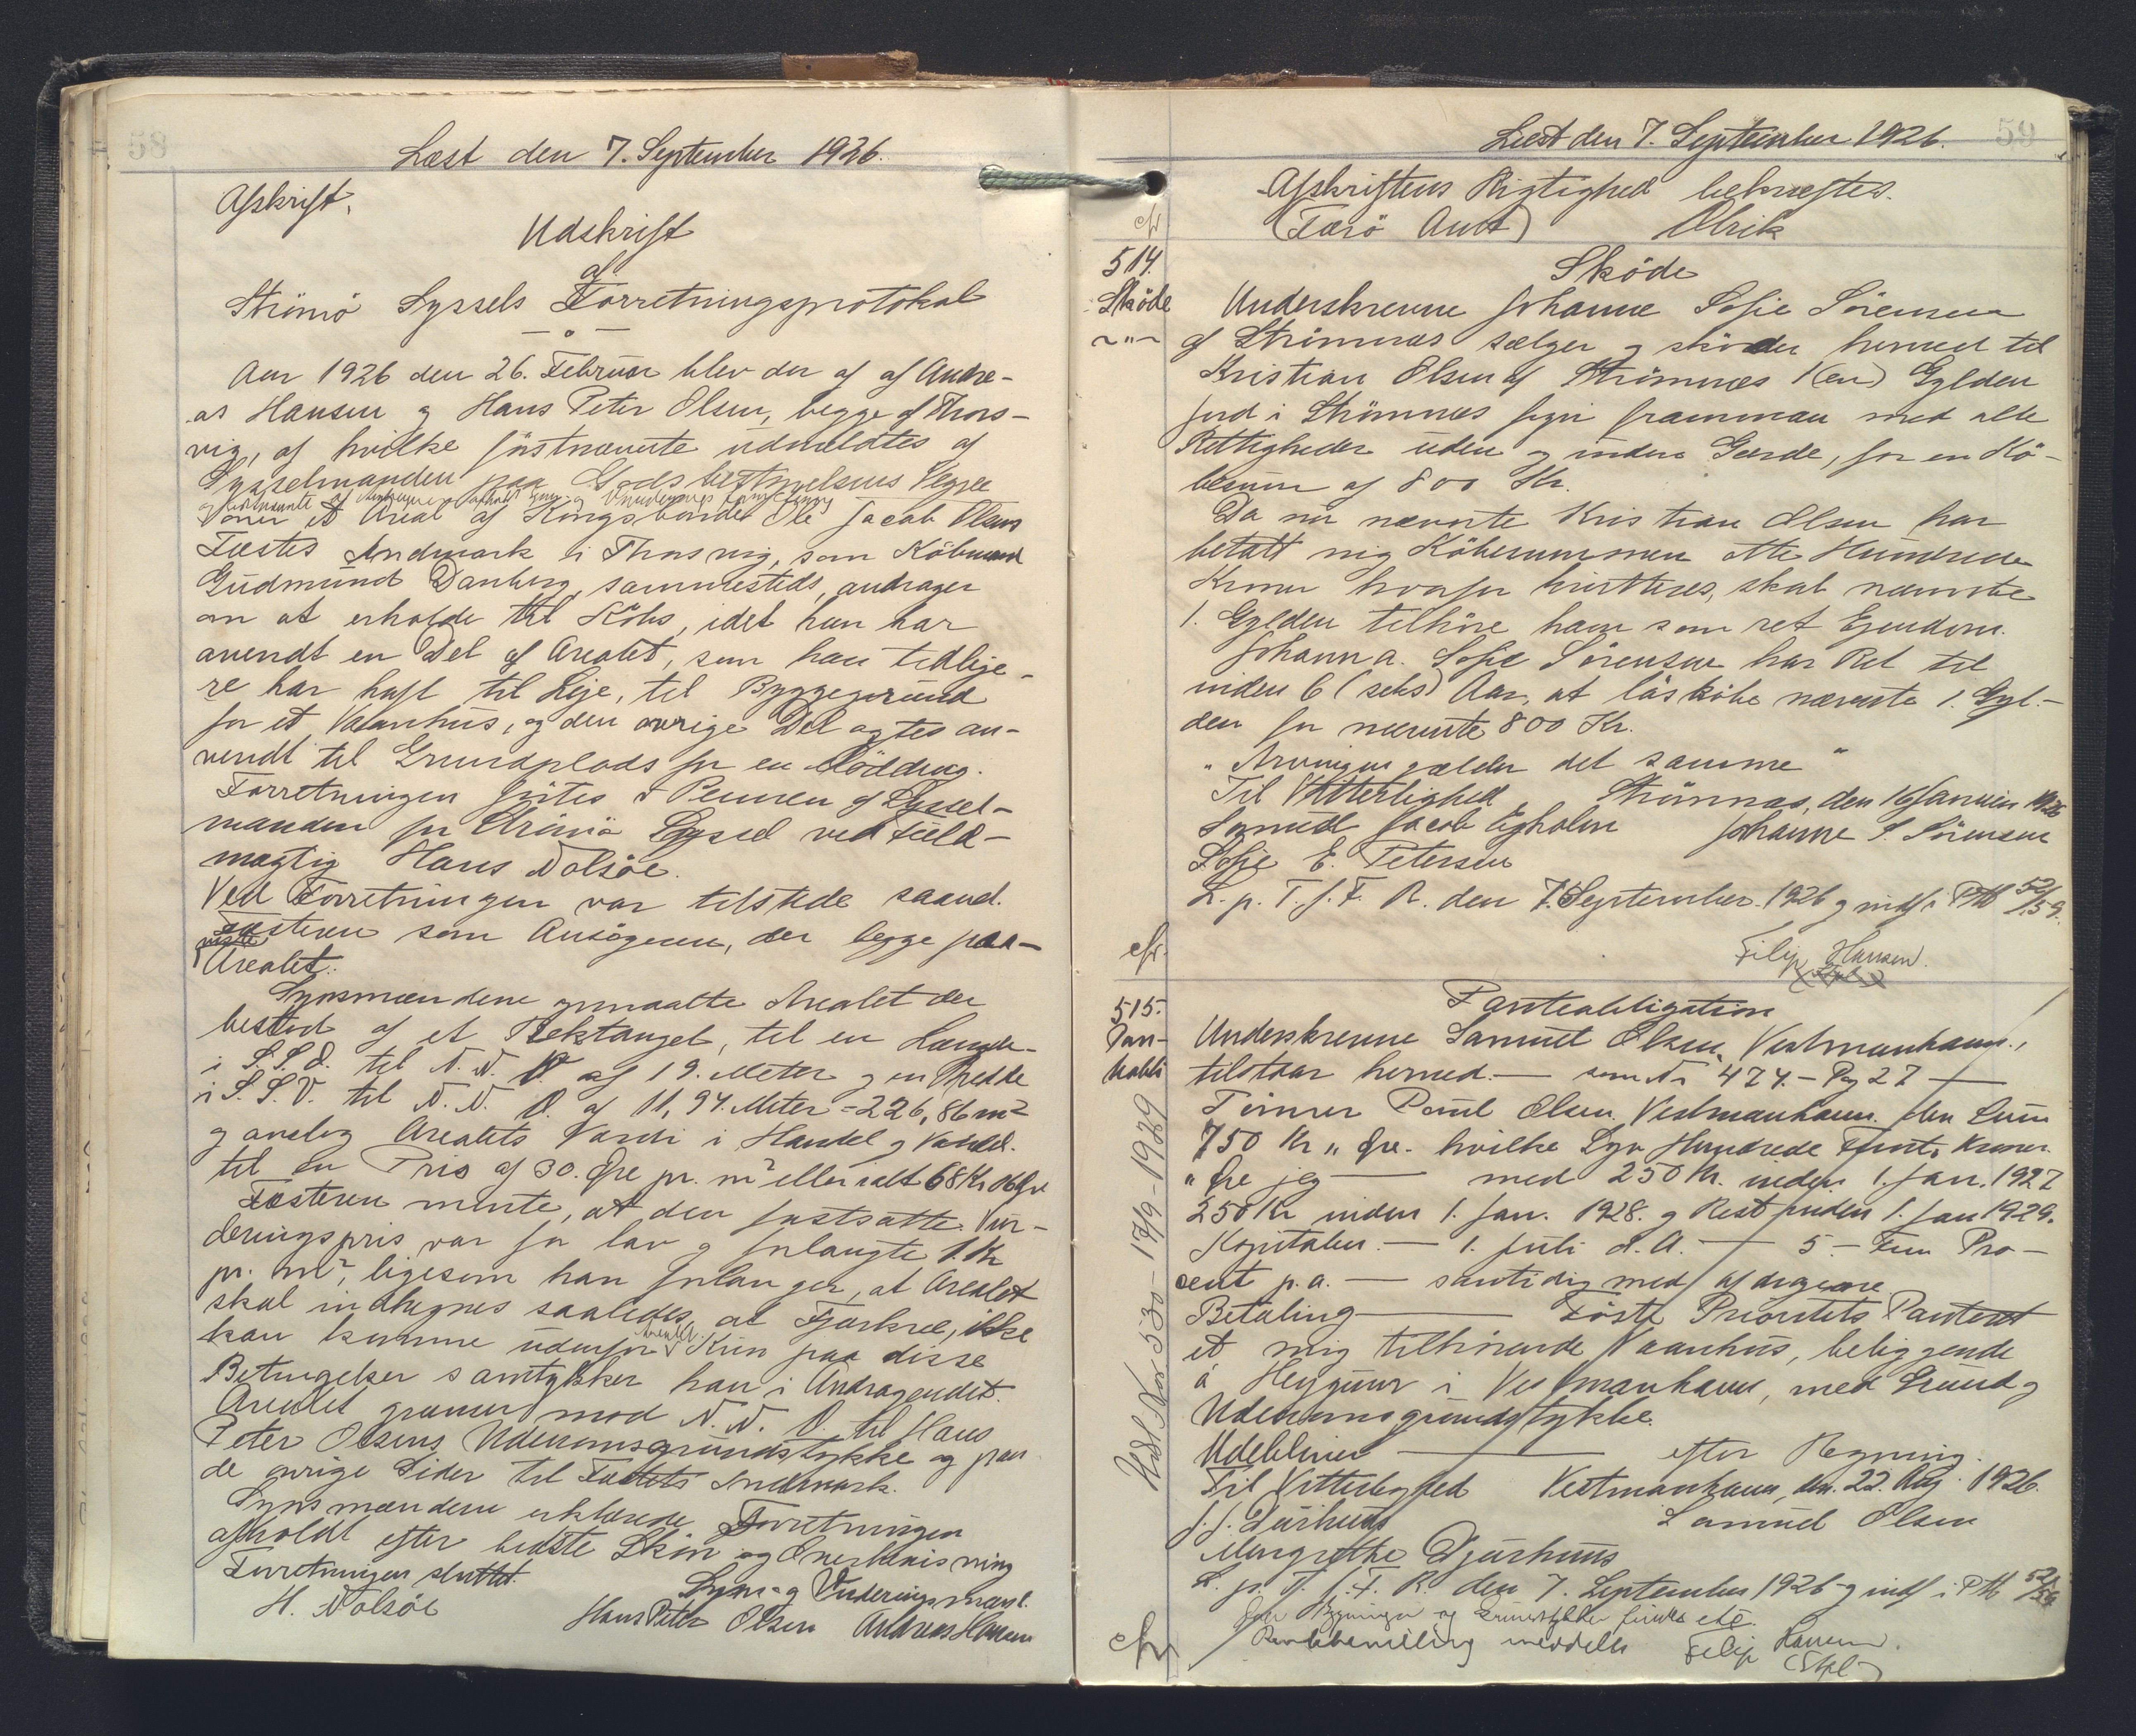 58
Læst den 7. September 1926.
Afskrift.
Udskrift
af
Strömö Syssels Forretningsprotokol
Aar 1926 den 26. Februar blev der af af Andre-
as Hansen og Hans Peter Olsen, begge af Thors-
vig, af hvilke förstnævnte udmeldtes af
Sysselmanden paa Godsbestyrelsens Vegne
og sidstnævnte af Andrageren afholdt Syns og Vurderings forretning
over et Areal af Kongsbonde Ole Jacob Olsens
Fæstes Indmark i Thorsvig, som Köbmand
Gudmund Danberg, sammesteds, andrager
om at erholde til Köbs, idet han har
avendt en Del af Arealet, som han tidlige-
re har haft til Leje, til Byggegrund
for et Vaanhus, og den övrige Del agtes an-
vendt til Grundplads for en Mödding.
Forretningen förtes i Pennen af Syssel-
manden for Strömö Syssel ved Fuld-
mægtig Hans Nolsöe.
Ved Forretningen var tilstede saavel
Fæsteren som Ansögeren, der begge paa-
viste
Arealet.
Synsmændene opmaalte Arealet der
bestod af et Rektangel, til en Længde
i S.S.Ö. til N.N.V. af 19. Meter og en Bredde
i S.S.V. til N.N.Ö. af 11,94. Meter = 226,86 m²
og anslog Arealets Værdi i Handel og Vandel
til en Pris af 30. Øre pr. m² eller ialt 68 Kr 06 Øre
Fæsteren mente, at den fastsatte Vur-
deringspris var for lav og forlangte 1. Kr
pr. m², ligesom han forlanger, at Arealet
skal indhegnes saaledes, at Fjerkræ, ikke
kan komme udenfor Arealet. Kun paa disse
Betingelser samtykker han i Andragendet.
Arealet grænser mod N.N.Ö. til Hans
Peter Olsens Udenomsgrundstykke og paa
de övrige Sider til Fæstets Indmark.
Synsmændene erklærede Forretningen
afholdt efter bedste Skön og Overbevisning
Forretningen sluttet.
Syns- og Vurderingsmænd.
H. Nolsöe
Hans Peter Olsen Andreas Hansen
59
Læst den 7. September 1926.
Afskriftens Rigtighed bekræftes.
(Færö Amt) Olrik
cfr
514.
Sköde
Sköde
Underskrevne Johanne Sofie Sörensen
~"~
af Strömnæs sælger og sköder herved til
Kristian Olsen af Strömnæs 1 (en) Gylden
Jord i Strömnæs fyriframman med alle
Rettigheder uden og inden Gærde, for en Kö-
besum af 800 Kr.
Da nu nævnte Kristian Olsen har
betalt mig Köbesummen otte Hundrede
Kroner hvorfor kvitteres, skal nævnte
1. Gylden tilhöre ham som ret Ejendom.
Johanna Sofie Sörensen har Ret til
inden 6 (seks) Aar, at löskøbe nævnte 1. Gyl-
den for nævnte 800 Kr.
"Arvingen gælder det samme"
Til Vitterlighed Strömnæs, den 16 Januar 1926
Jacob Egholm Johanne S. Sörensen
Sofie E. Petersen
L. p. T. f. F. R. den 7. September 1926 og indf i Ptl 52/59.
Filip Hansen.
cfr.
515.
Pan-
tobli
Panteobligation
Underskrevne Samuel Olsen, Vestmanhavn,
tilstaar herved — som No 474. – Pag 27 —
Tömrer Poul Olsen Vestmanhavn den Sum
750 Kr " Øre. hvilke Syv Hundrede Femti Kroner
" Øre jeg — med 250 Kr. inden 1. Jan. 1927
250 Kr inden 1. Jan. 1928. og Rest inden 1. Jan 1929.
Kapitalen. — 1. Juli d.A. — 5 – Fem Pro-
cent p.a. — samtidig med afdragene
Betaling — Förste Prioritets Panteret
et mig tilhörende Vaanhus, beliggende
á Heygum i Vestmanhavn, med Grund og
Udenomsgrundstykke.
Udebliver — efter Regning.
Til Vitterlighed Vestmanhavn, den. 22. Aug. 1926.
J. J. Djurhuus Samuel Olsen
Margrethe Djurhuus
L. p. T. f. F. R. den 7. September 1926 og indf i Ptl 52/59
Bygningen og Grundstykket etc.
meddelt Filip Hansen.
(Stpl)
cfr
Udsl. No 530 – 17/9 – 1929